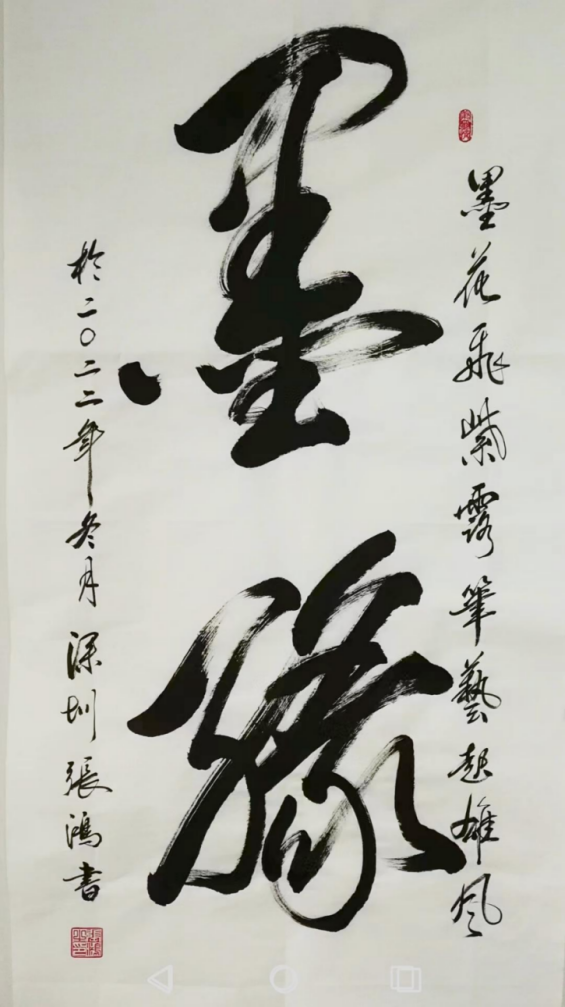 墨花飛紫露筆藝起雄風
墨緣
於二〇二二年冬月深圳張鴻書